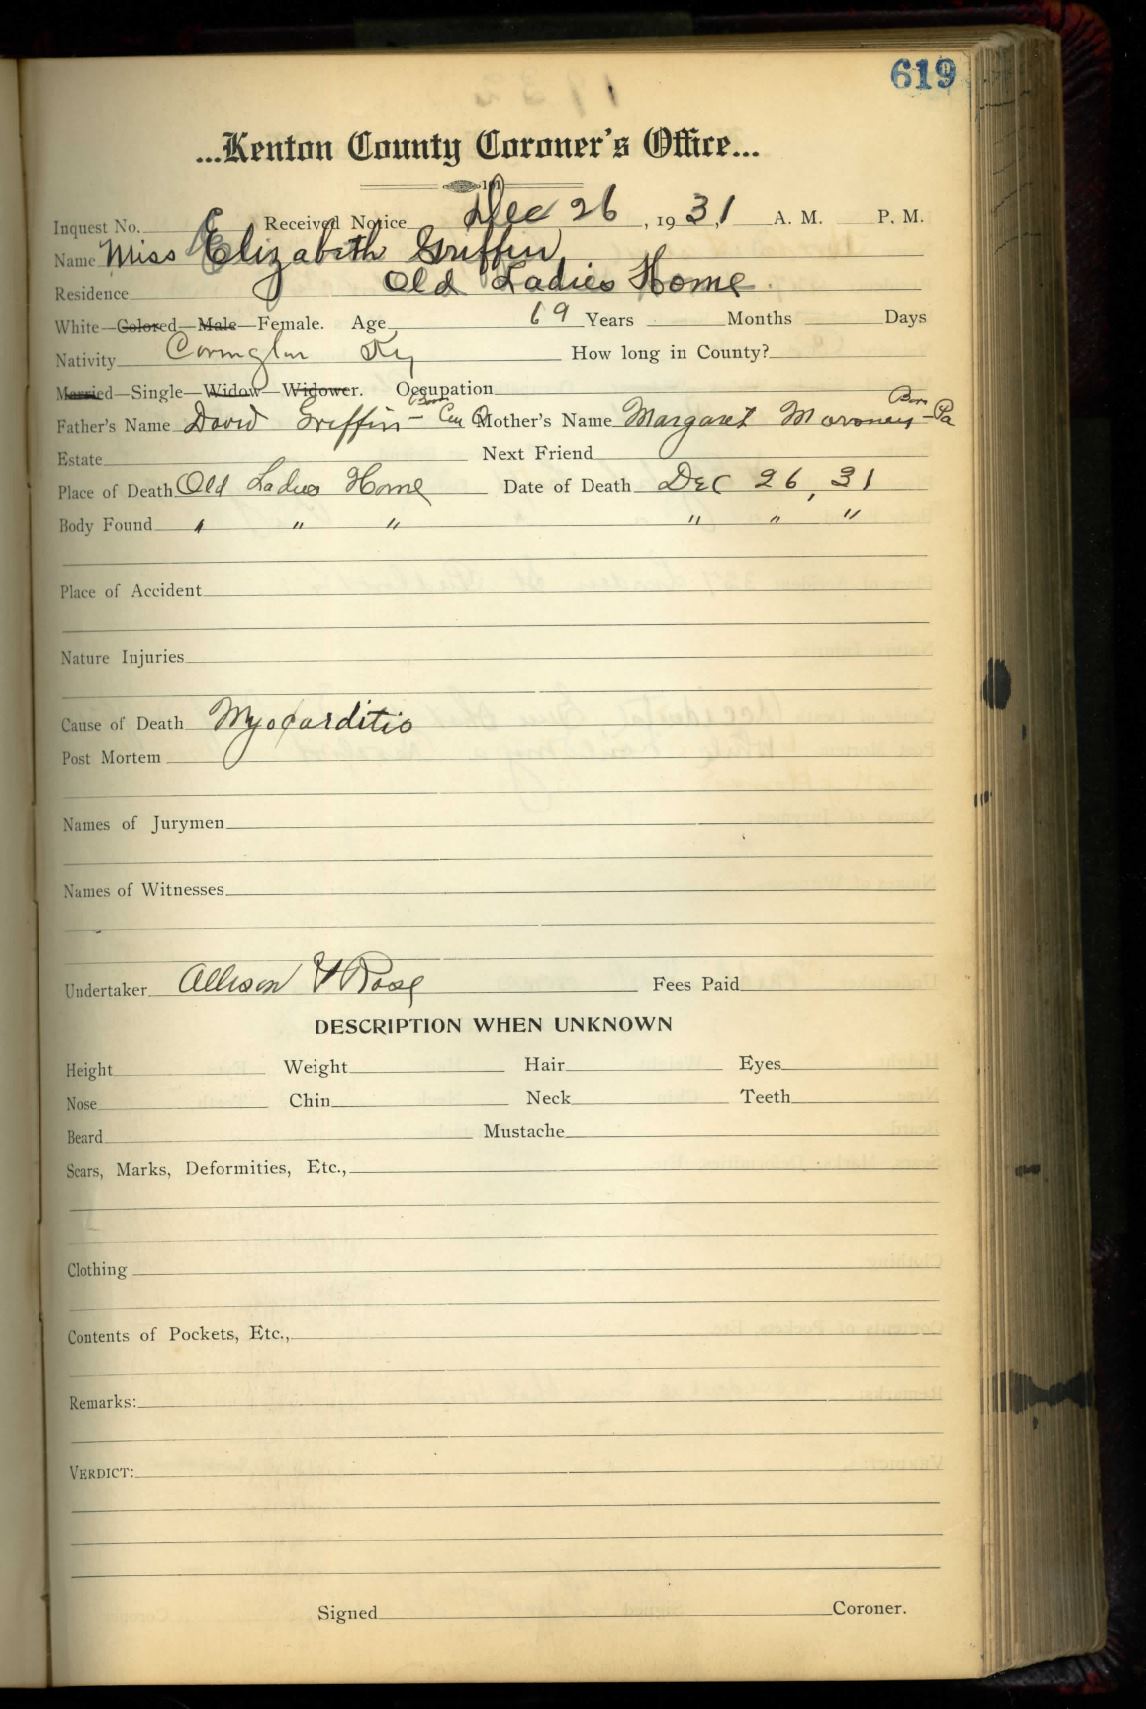 619
...Kenton County Coroner's Office...
Inquest No. Received Notice Dec 26, 1931 A. M. P. M.
Name Miss Elizabeth Griffin
Residence Old Ladies Home
White—Colored—Male—Female. Age 69 Years Months Days
Nativity Covington Ky How long in County?
Married—Single—Widow—Widower. Occupation
Father's Name David Griffin - Born Cin O Mother's Name Margaret Maroney - Born Pa
Estate Next Friend
Place of Death Old Ladies Home Date of Death Dec 26, 31
Body Found " " " " " "
Place of Accident
Nature Injuries
Cause of Death Myocarditis
Post Mortem
Names of Jurymen
Names of Witnesses
Undertaker Allison & Rose Fees Paid
DESCRIPTION WHEN UNKNOWN
Height Weight Hair Eyes
Nose Chin Neck Teeth
Beard Mustache
Scars, Marks, Deformities, Etc.,
Clothing
Contents of Pockets, Etc.,
Remarks:
VERDICT:
Signed Coroner.